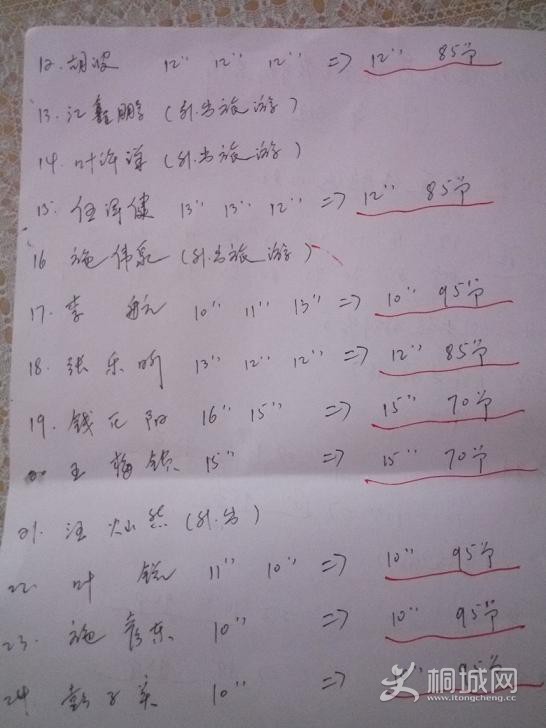 12. 胡波 12" 12" 12" => 12" 85节
13. 江鑫鹏 (外出旅游)
14. 叶许谋 (外出旅游)
15. 任泽健 13" 13" 12" => 12" 85节
16 施伟泉 (外出旅游)
17. 李航 10" 11" 13" => 10" 95节
18. 张乐昕 13" 12" 12" => 12" 85节
19. 钱正阳 16" 15" => 15" 70节
20 王梅 15" => 15" 70节
21. 汪灿然 (外出)
22. 叶锐 11" 10" => 10" 95节
23. 施彦东 10" => 10" 95节
24 10" =>
桐城网
www.itongcheng.cc